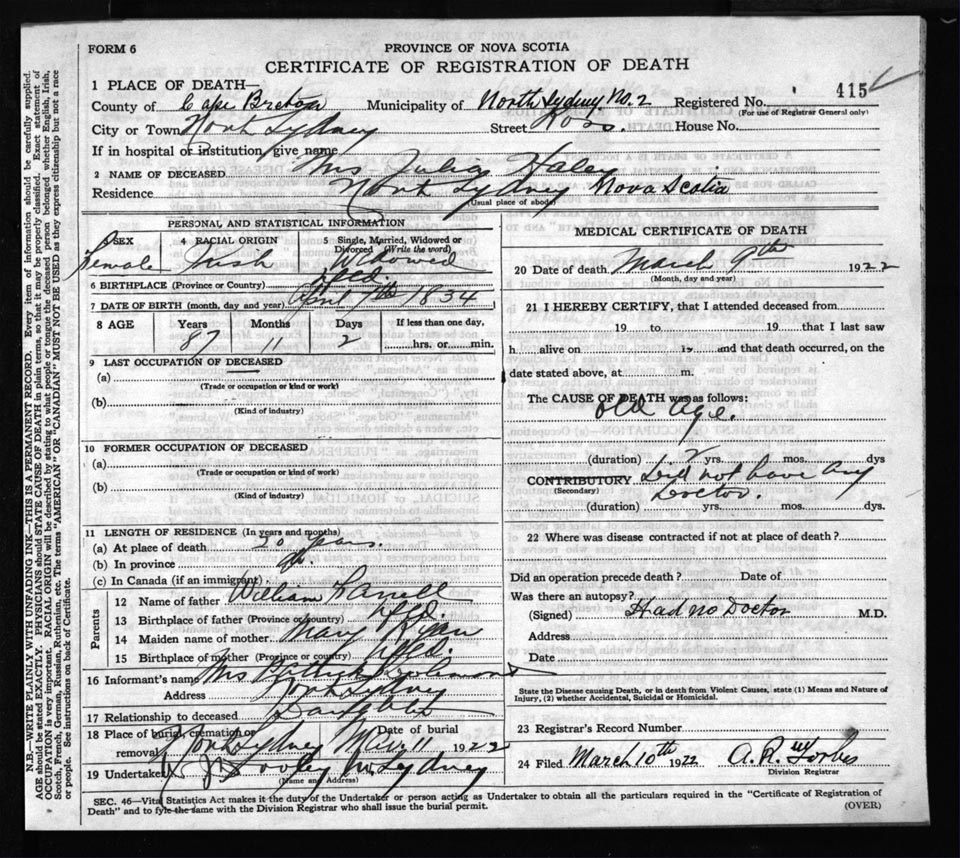 FORM 6
PROVINCE OF NOVA SCOTIA
CERTIFICATE OF REGISTRATION OF DEATH
1 PLACE OF DEATH—
415
County of Cape Breton Municipality of North Sydney No. 2 Registered No.
(For use of Registrar General only)
City or Town North Sydney Street Ross. House No.
If in hospital or institution, give name
2 NAME OF DECEASED Mrs Julia Haley
Residence North Sydney Nova Scotia
(Usual place of abode)
PERSONAL AND STATISTICAL INFORMATION
SEX Female
4 RACIAL ORIGIN Irish
5 Single, Married, Widowed or Divorced (Write the word) Widowed
6 BIRTHPLACE (Province or Country) Nfld.
7 DATE OF BIRTH (month, day and year) April 7th 1834
8 AGE Years Months Days If less than one day,
87 11 2 hrs. or min.
9 LAST OCCUPATION OF DECEASED
(a)
(Trade or occupation or kind or work)
(b)
(Kind of industry)
10 FORMER OCCUPATION OF DECEASED
(a)
(Trade or occupation or kind of work)
(b)
(Kind of industry)
11 LENGTH OF RESIDENCE (in years and months)
(a) At place of death 20 years.
(b) In province
(c) In Canada (if an immigrant)
Parents
12 Name of father William
13 Birthplace of father (Province or country) Nfld.
14 Maiden name of mother Mary Ryan
15 Birthplace of mother (Province or country) Nfld.
16 Informant's name Mrs
Address North Sydney
17 Relationship to deceased Daughter
18 Place of burial, cremation or removal North Sydney Date of burial Mar. 11 1922
19 Undertaker N. Sydney
(Name and Address)
MEDICAL CERTIFICATE OF DEATH
20 Date of death March 9th 1922
(Month, day and year)
21 I HEREBY CERTIFY, that I attended deceased from
19 to 19 that I last saw
h alive on 19 and that death occurred, on the
date stated above, at m.
The CAUSE OF DEATH was as follows:
Old Age.
(duration) yrs. mos. dys
CONTRIBUTORY Did not have any
(Secondary) Doctor.
(duration) yrs. mos. dys.
22 Where was disease contracted if not at place of death?
Did an operation precede death? Date of
Was there an autopsy?
(Signed) Had no Doctor M.D.
Address
Date
State the Disease causing Death, or in death from Violent Causes, state (1) Means and Nature of
Injury, (2) whether Accidental, Suicidal or Homicidal.
23 Registrar's Record Number
24 Filed March 10th 1922 A. R. Forbes
Division Registrar
SEC. 46—Vital Statistics Act makes it the duty of the Undertaker or person acting as Undertaker to obtain all the particulars required in the "Certificate of Registration of
Death" and to fyle the same with the Division Registrar who shall issue the burial permit.
(OVER)
N.B.—WRITE PLAINLY WITH UNFADING INK—THIS IS A PERMANENT RECORD. Every item of information should be carefully supplied.
AGE should be stated EXACTLY. PHYSICIANS should STATE CAUSE OF DEATH in plain terms, so that it may be properly classified. Exact statement of
OCCUPATION is very important. RACIAL ORIGIN will be described by stating to what people or tongue the deceased person belonged whether English, Irish,
Scotch, French, German, Russian, Ruthenian, etc. The terms "AMERICAN" OR "CANADIAN" MUST NOT BE USED as they express citizenship but not a race
or people. See instructions on back of Certificate.